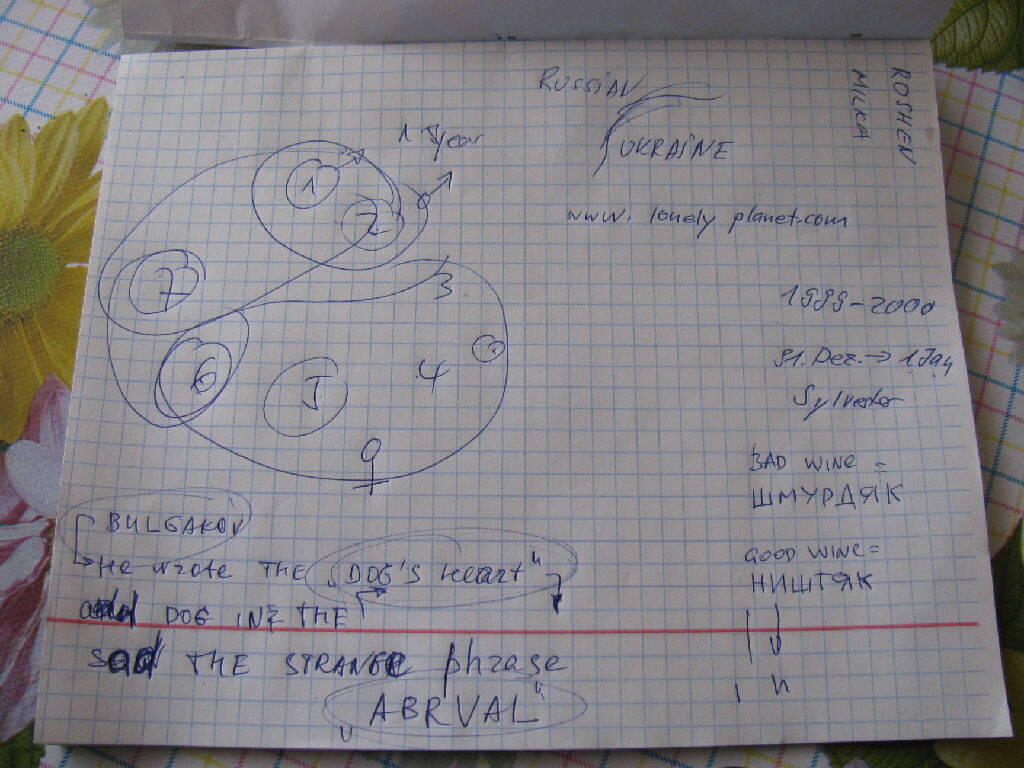 ROSHEN
MILKA
RUSSIAN
UKRAINE
1 year
www.lonely planet.com
1
2
7
3
6
5
4
1999-2000
31. Dez. → 1 Jan
Sylvester
BAD WINE =
ШМУРДЯК
GOOD WINE =
НИШТЯК
BULGAKOV
He wrote THE „DOG'S Heart"
DOG IN THE
THE STRANGE phrase
„ABRVAL"